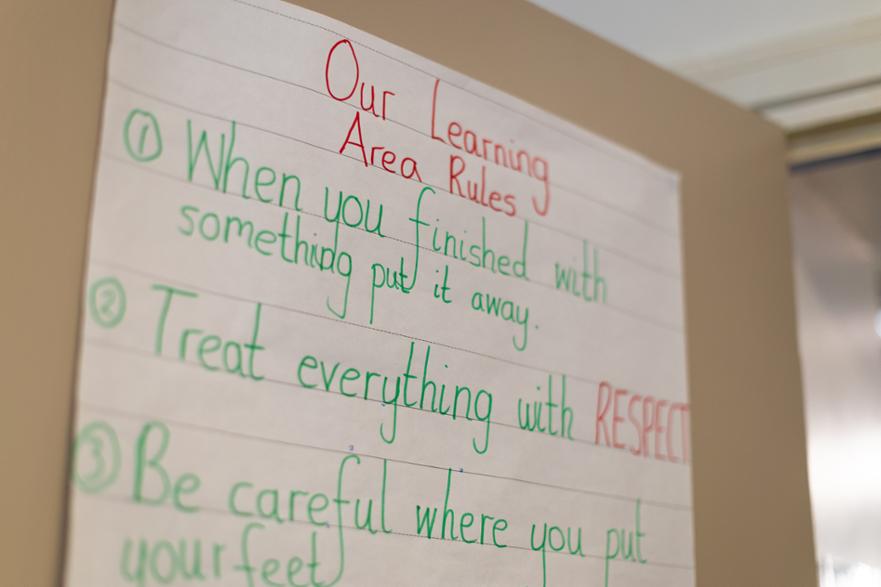 Our Learning
Area Rules
① When you finished with
something put it away.
② Treat everything with RESPECT
③ Be careful where you put
your feet